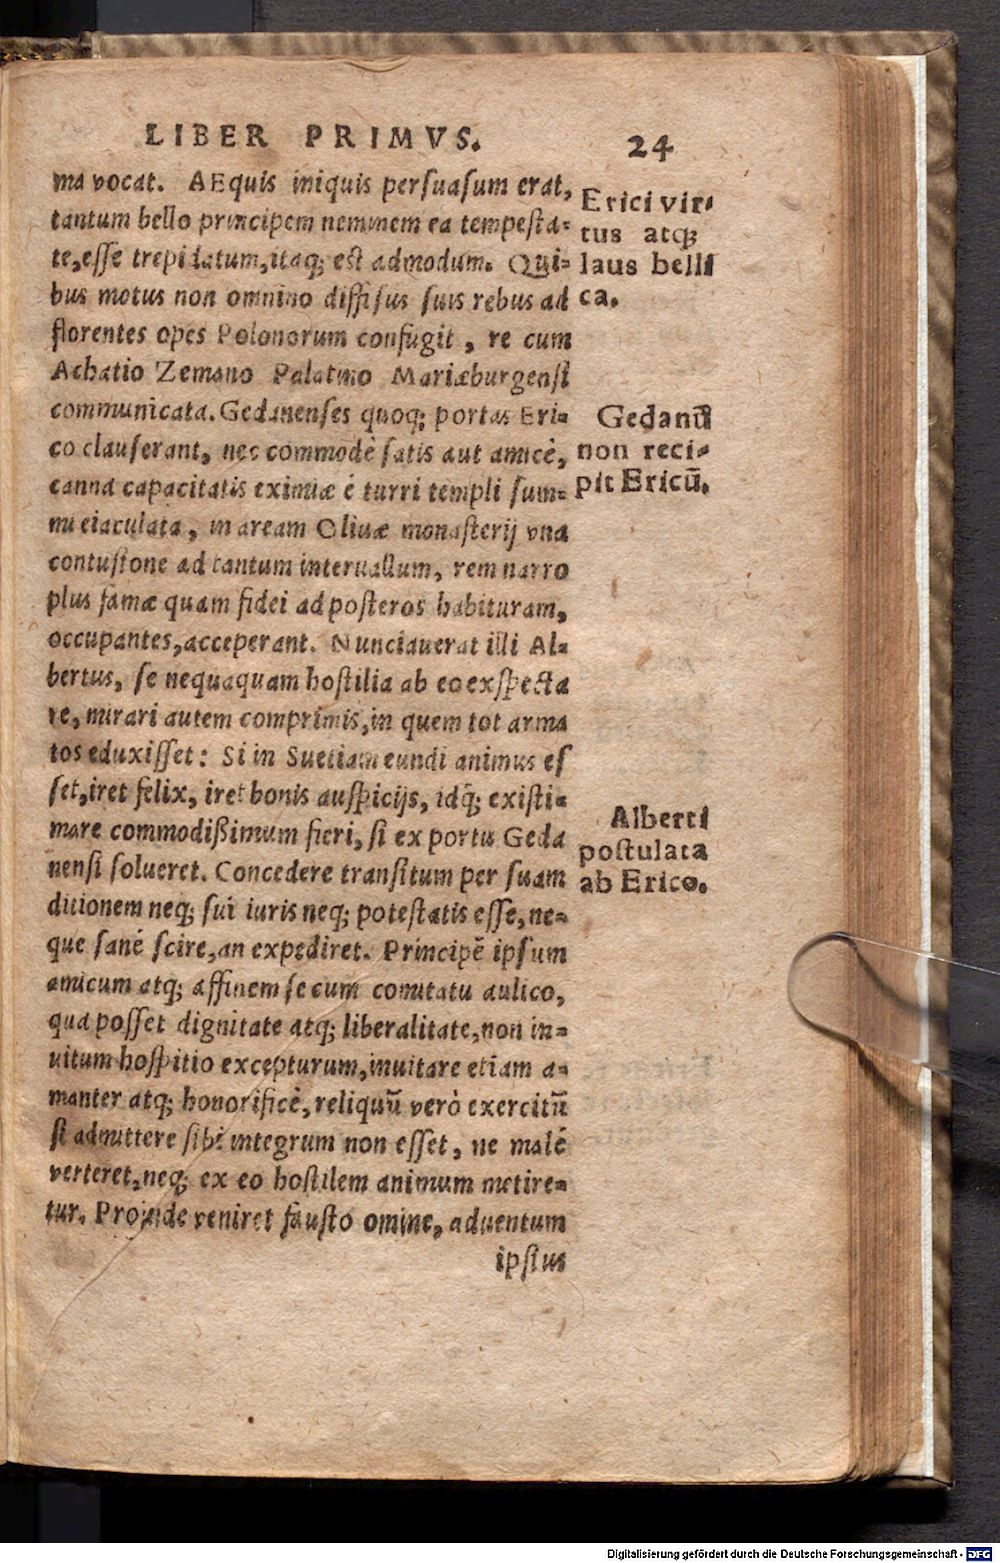 LIBER PRIMVS. 24
ma vocat. AEquis iniquis persuasum erat,
tantum bello principem neminem ea tempesta-
te, esse trepidatum, itaq; est admodum. Qui-
bus motus non omnino diffisus suis rebus ad
florentes opes Polonorum confugit, re cum
Achatio Zemano Palatino Mariæburgensi
communicata. Gedanenses quoq; portas Eri-
co clauserant, nec commodè satis aut amicè,
canna capacitatis eximiæ é turri templi sum-
mi eiaculata, in aream Oliuæ monasterij vna
contusione ad tantum interuallum, rem narro
plus famæ quam fidei ad posteros habituram,
occupantes, acceperant. Nunciauerat illi Al-
bertus, se nequaquam hostilia ab eo exspecta
re, mirari autem comprimis, in quem tot arma
tos eduxisset: Si in Suetiam eundi animus es
set, iret felix, iret bonis auspicijs, idq́; existi-
mare commodißimum fieri, si ex portu Geda
nensi solueret. Concedere transitum per suam
ditionem neq; sui iuris neq; potestatis esse, ne-
que sané scire, an expediret. Principẽ ipsum
amicum atq; affinem se cum comitatu aulico,
qua posset dignitate atq; liberalitate, non in-
uitum hospitio excepturum, inuitare etiam a-
manter atq; honorificè, reliquũ verò exercitũ
si admittere sibi integrum non esset, ne malé
verteret, neq; ex eo hostilem animum metire-
tur. Proinde veniret fausto omine, aduentum
ipsius
Erici vir-
tus atq;
laus belli
ca.
Gedanũ
non reci-
pit Ericũ.
Alberti
postulata
ab Erico.
Digitalisierung gefördert durch die Deutsche Forschungsgemeinschaft - DFG